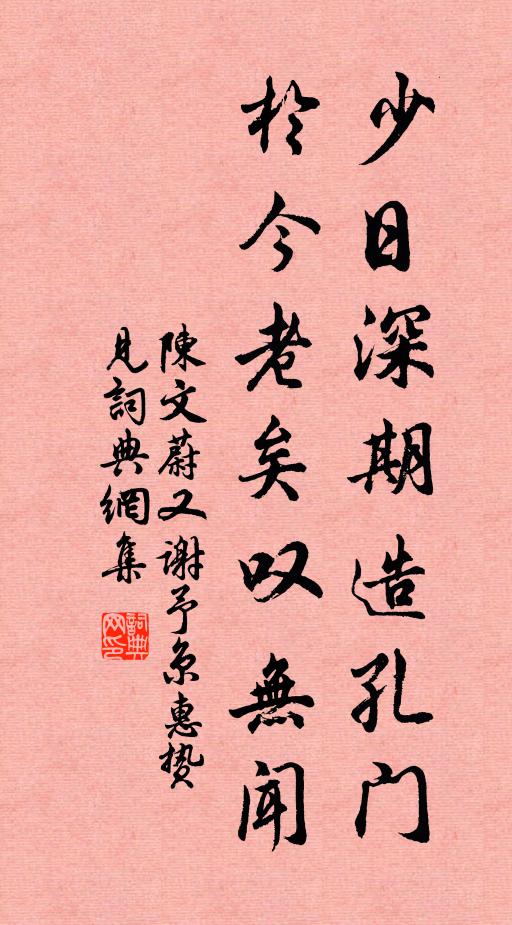 少日深期造孔门
於今老矣叹無闻
陳文蔚又谢予京惠贽
見詞典網集
詞典网印